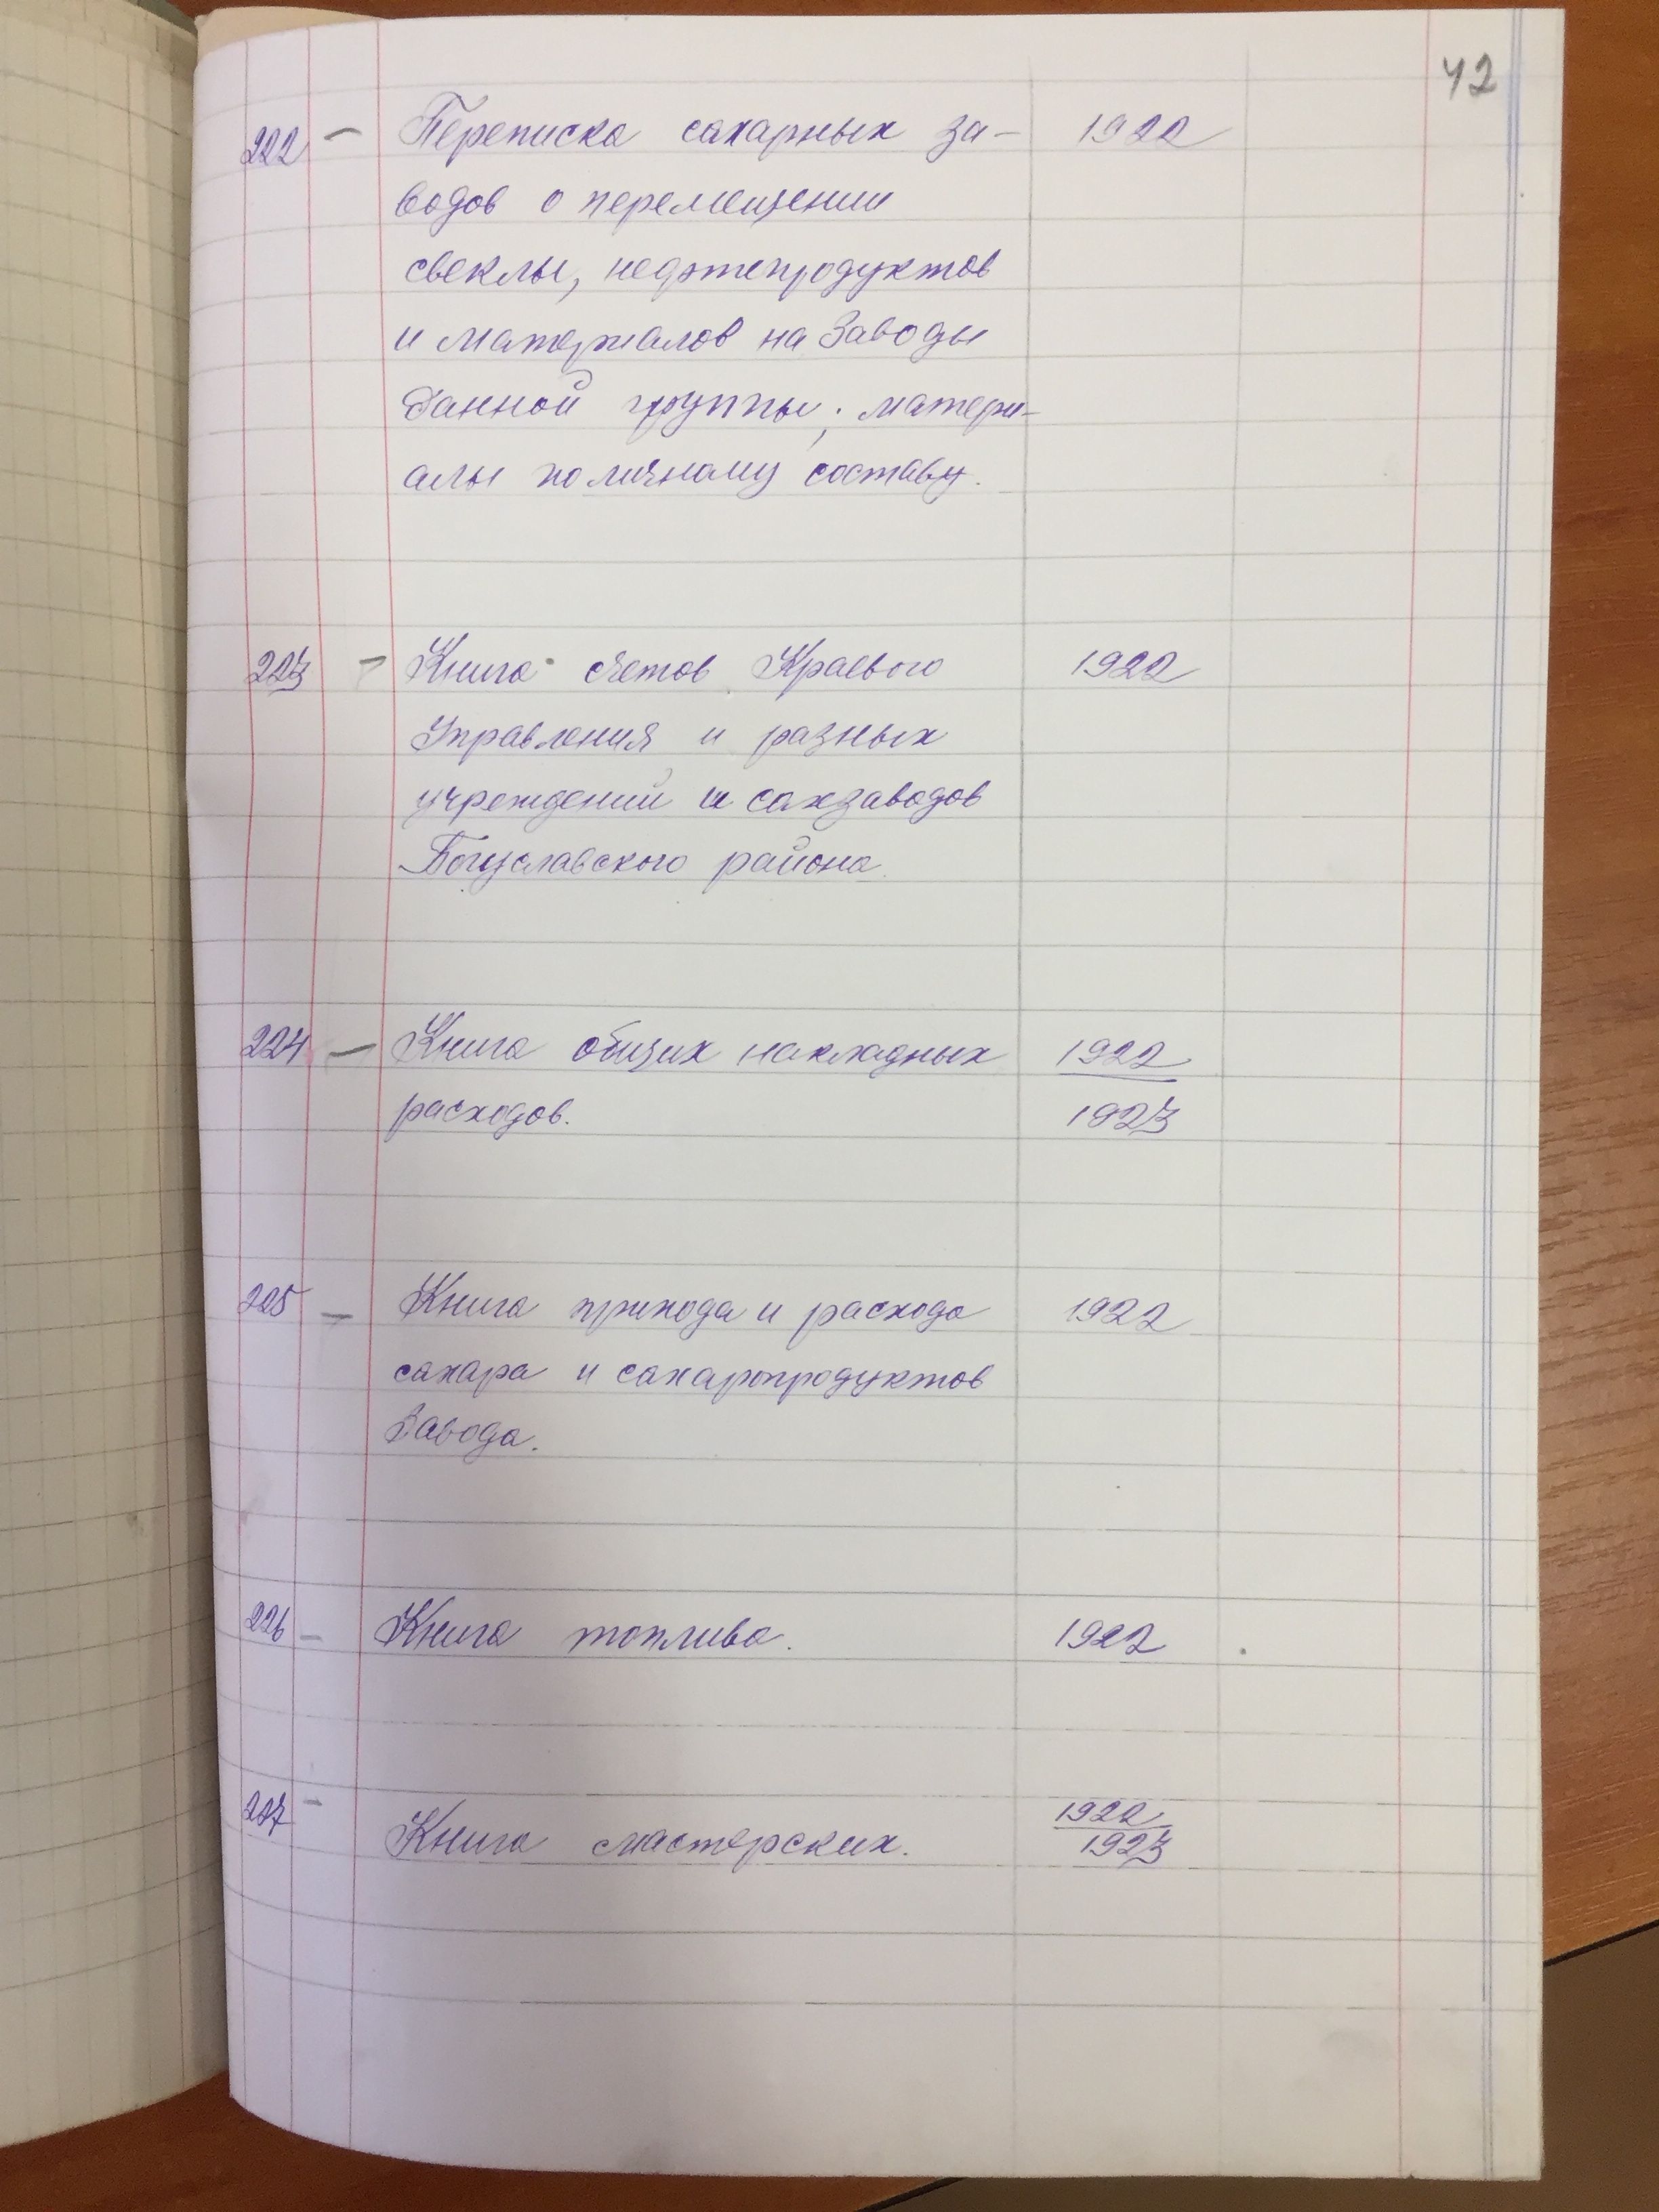 42
222 — Переписка сахарных за- 1922
водов о перемещении
свеклы, нефтепродуктов
и материалов на заводы
данной группы; матери-
алы по личному составу.
223 — Книга счетов Краевого 1922
Управления и разных
учреждений и сахзаводов
Богуславского района.
224 — Книга общих накладных 1922
расходов. 1923
225 — Книга прихода и расхода 1922
сахара и сахаропродуктов
завода.
226 — Книга топлива. 1922
227 — Книга мастерских. 1922
1923